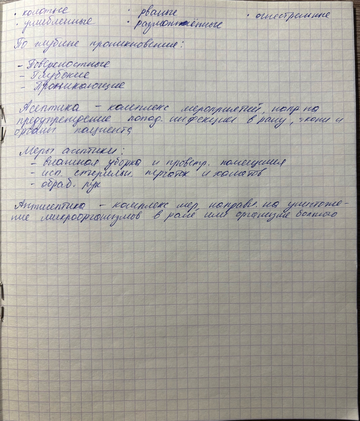 · колотые · рваные · огнестрельные
· ушибленные · размозжённые
По глубине проникновения:
- Поверхностные
- Глубокие
- Проникающие
Асептика - комплекс мероприятий, напр на
предупреждение попад. инфекции в рану, ткани и
организм пациента
Меры асептики:
- влажная уборка и проветр. помещения
- исп. стерильн. перчаток и халатов
- обраб. рук
Антисептика - комплекс мер, направл. на уничтоже-
ние микроорганизмов в ране или организме больного